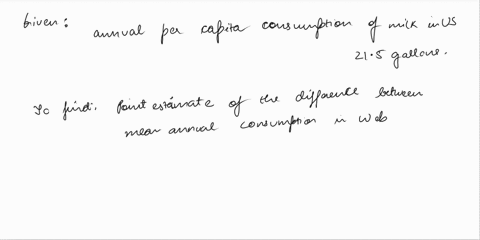 Given: annual per capita consumption of milk in US
21.5 gallons.
To find: Point estimate of the difference between
mean annual consumption in Web